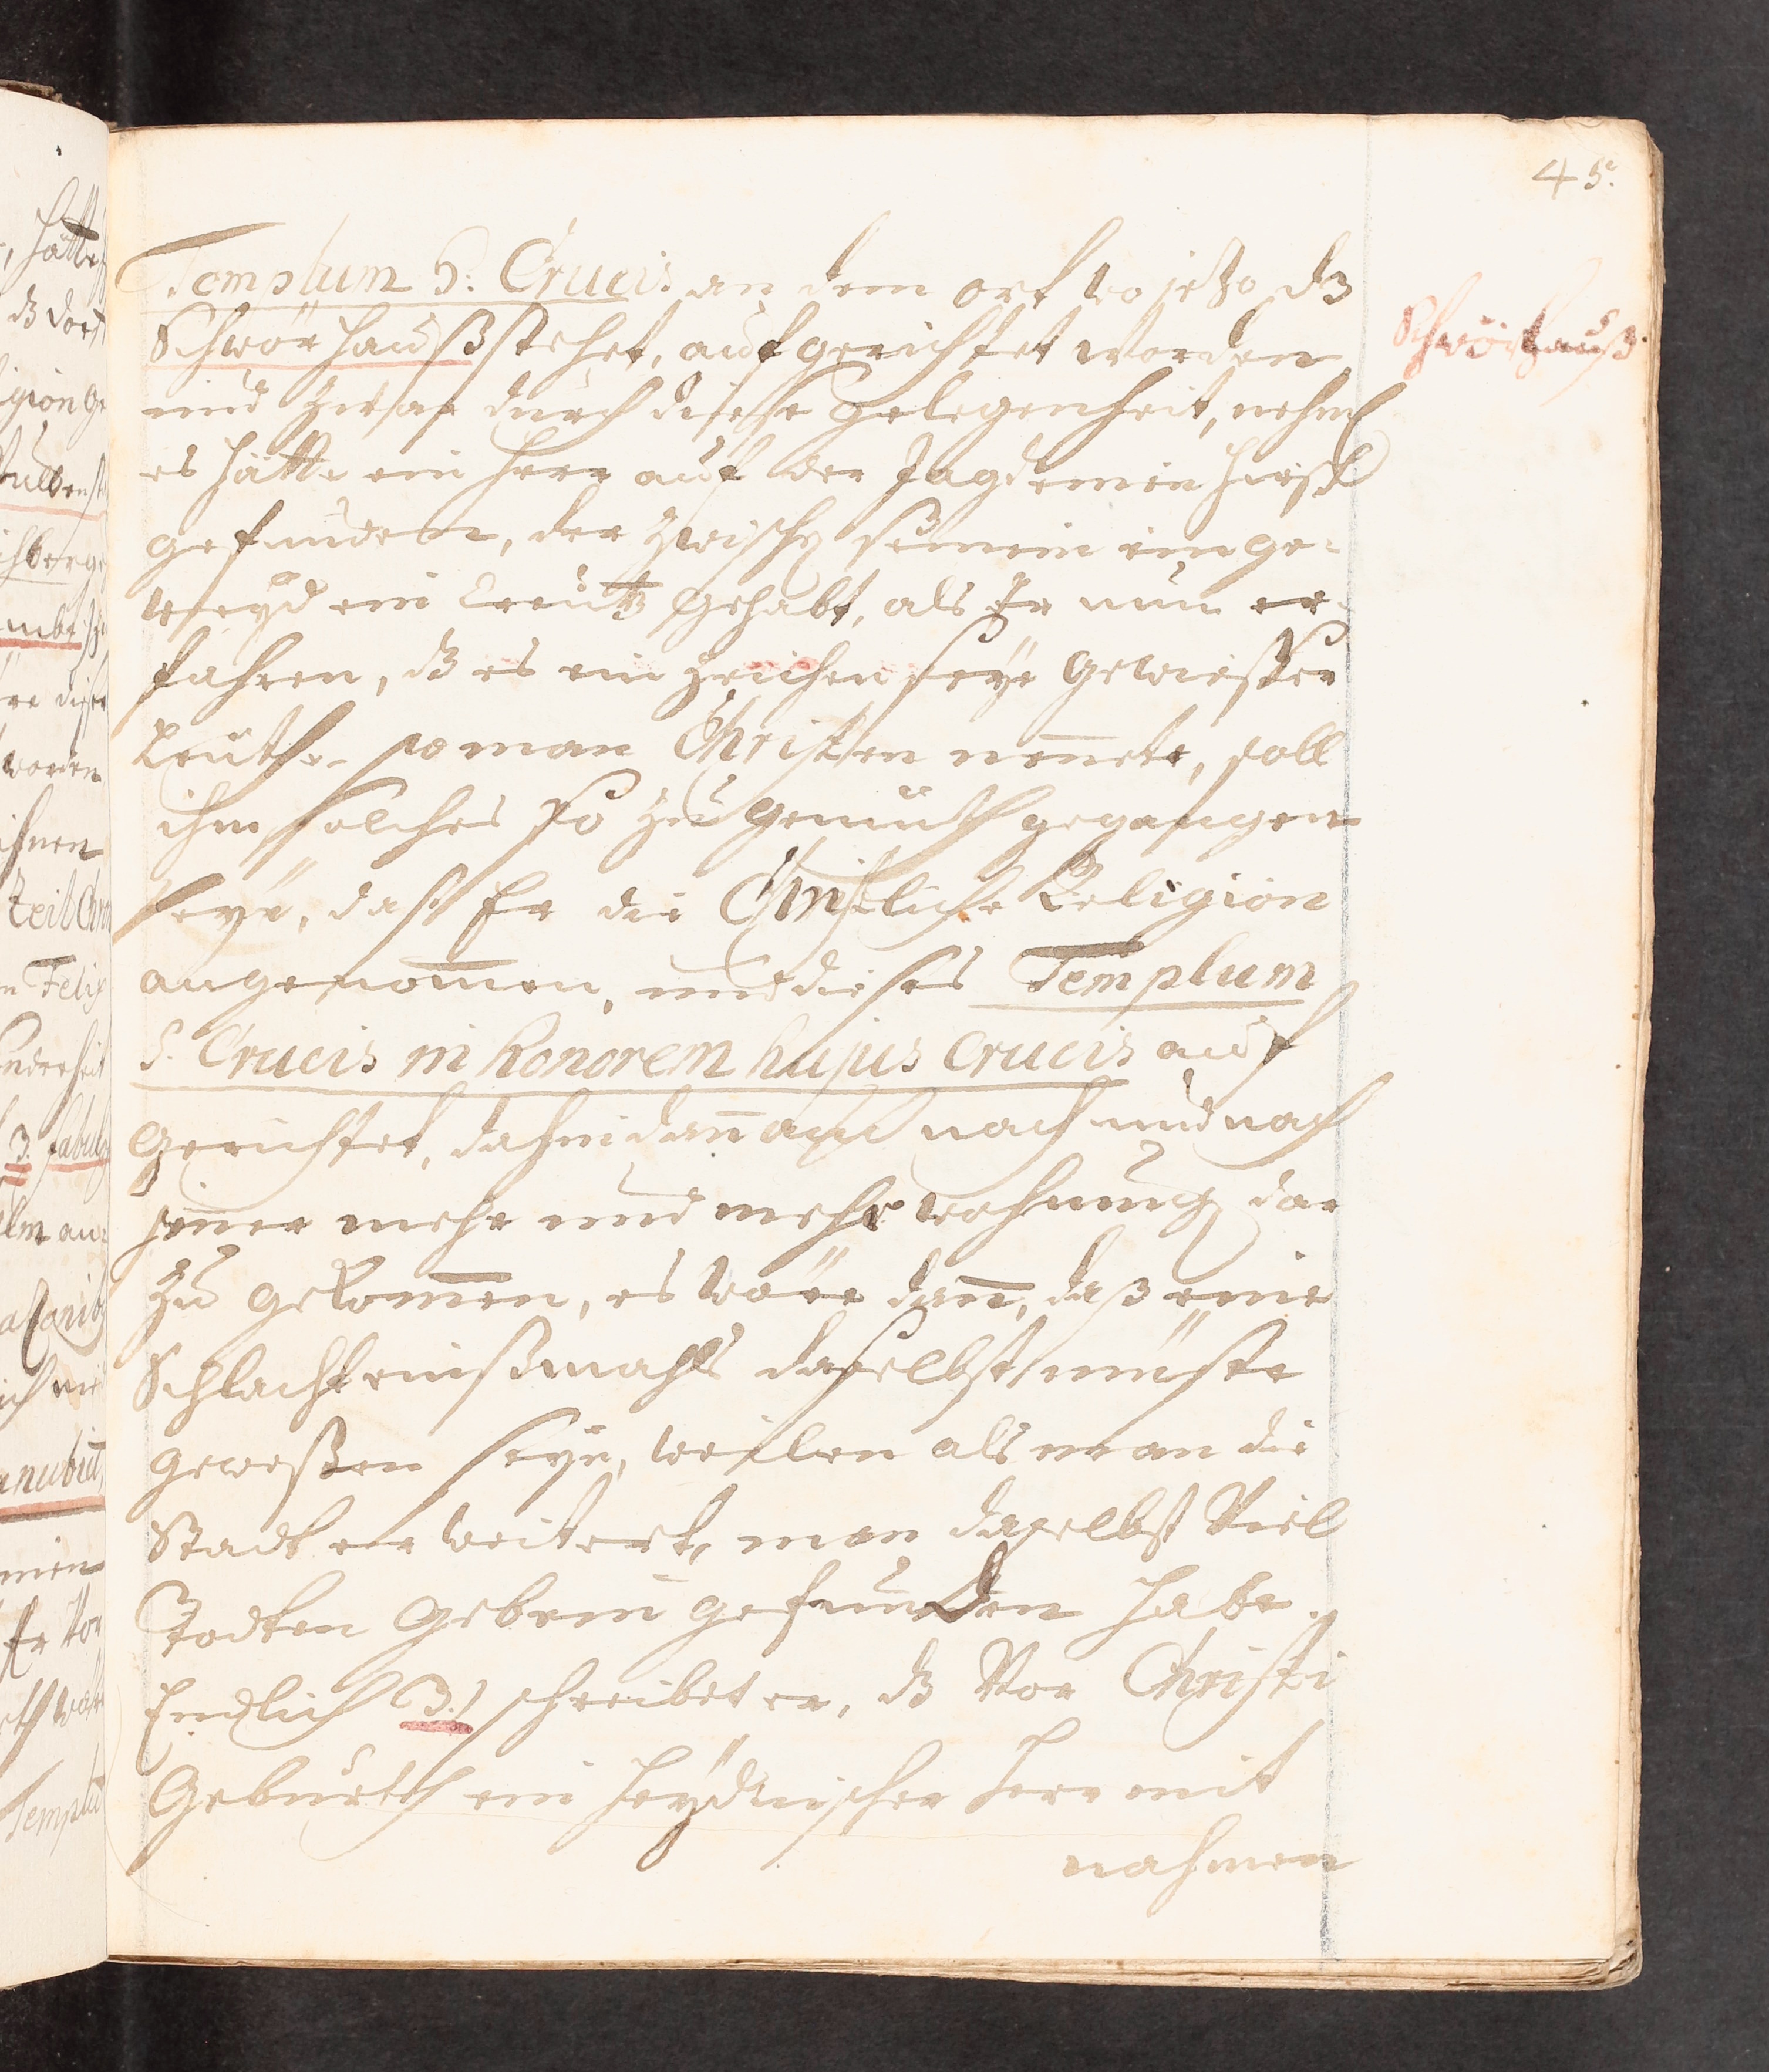 45.
Templum S: Crucis an dem ort wo jetzo dz
Schwörhauß stehet, auf gerichtet worden
Schwörhauß.
und zwar durch diese gelegenheit, nehml
es hätte ein Herr auf der Jagd einen Hirsch
gefunden, der zwischen seinem einge-
weyd ein Creutz gehabt, als Er nun er-
fahren, dz es ein zeichen seye gewießer
Leuthe so man Christen nennete, soll
ihm solches so zu gemüth gegangen
seyn, dass Er die Christliche Religion
angenommen, und dieses Templum
S. Crucis in honorem hujus Crucis auf
gerichtet, dahin dann auch nach und nach
jmer mehr und mehr wohnung dar
zu gekommen, es wäre dann, daß eine
Schlacht einßmahls daselbst müste
geweßen seyn, weilen als man die
Stadt erweitert, man daselbst Viel
Todten gebein gefunden habe.
Endlich 3.) schreibet er, dz Vor Christi
Geburth ein heydnischer Herr mit
nahmen